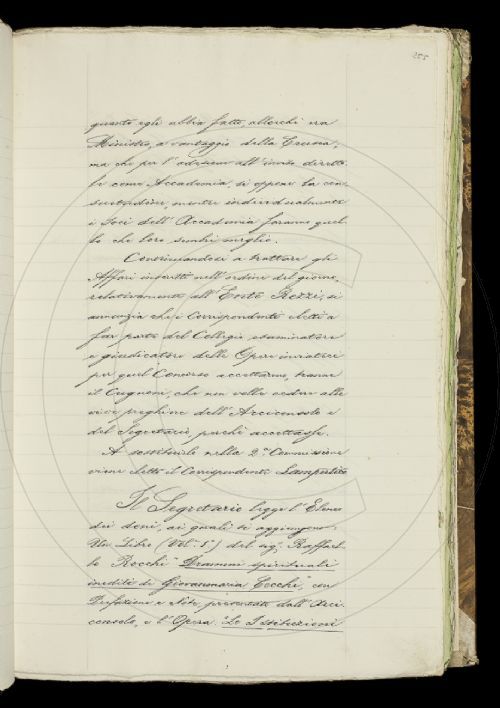 255
quanto egli abbia fatto, allorchè era
Ministro, a vantaggio della Crusca,
ma che per l'adesione all'invio diretto
le come Accademia, si oppone la con
suetudine, mentre individualmente
i Soci dell'Accademia faranno quel
lo che loro sembri meglio.
Continuandosi a trattare gli
Affari inscritti nell'ordine del giorno,
relativamente all'Ente Rezzi, si
annunzia che i Corrispondenti eletti a
far parte del Collegio esaminatore
e giudicatore delle Opere inviateci
per quel Concorso accettarono, tranne
il Cugnoni, che non volle cedere alle
vive preghiere dell'Arciconsolo e
del Segretario, perchè accettasse.
A sostituirlo nella 2.a Commissione
viene eletto il Corrispondente Lampertico
Il Segretario legge l'Elenco
dei doni, ai quali si aggiungono:
Un Libro (Vol. 1.o) del sig. Raffael
lo Rocchi "Drammi spirituali
inediti di Giovanmaria Cecchi," con
Prefazione e Note, presentato dall'Arci
consolo, e l'Opera "Le Istituzioni